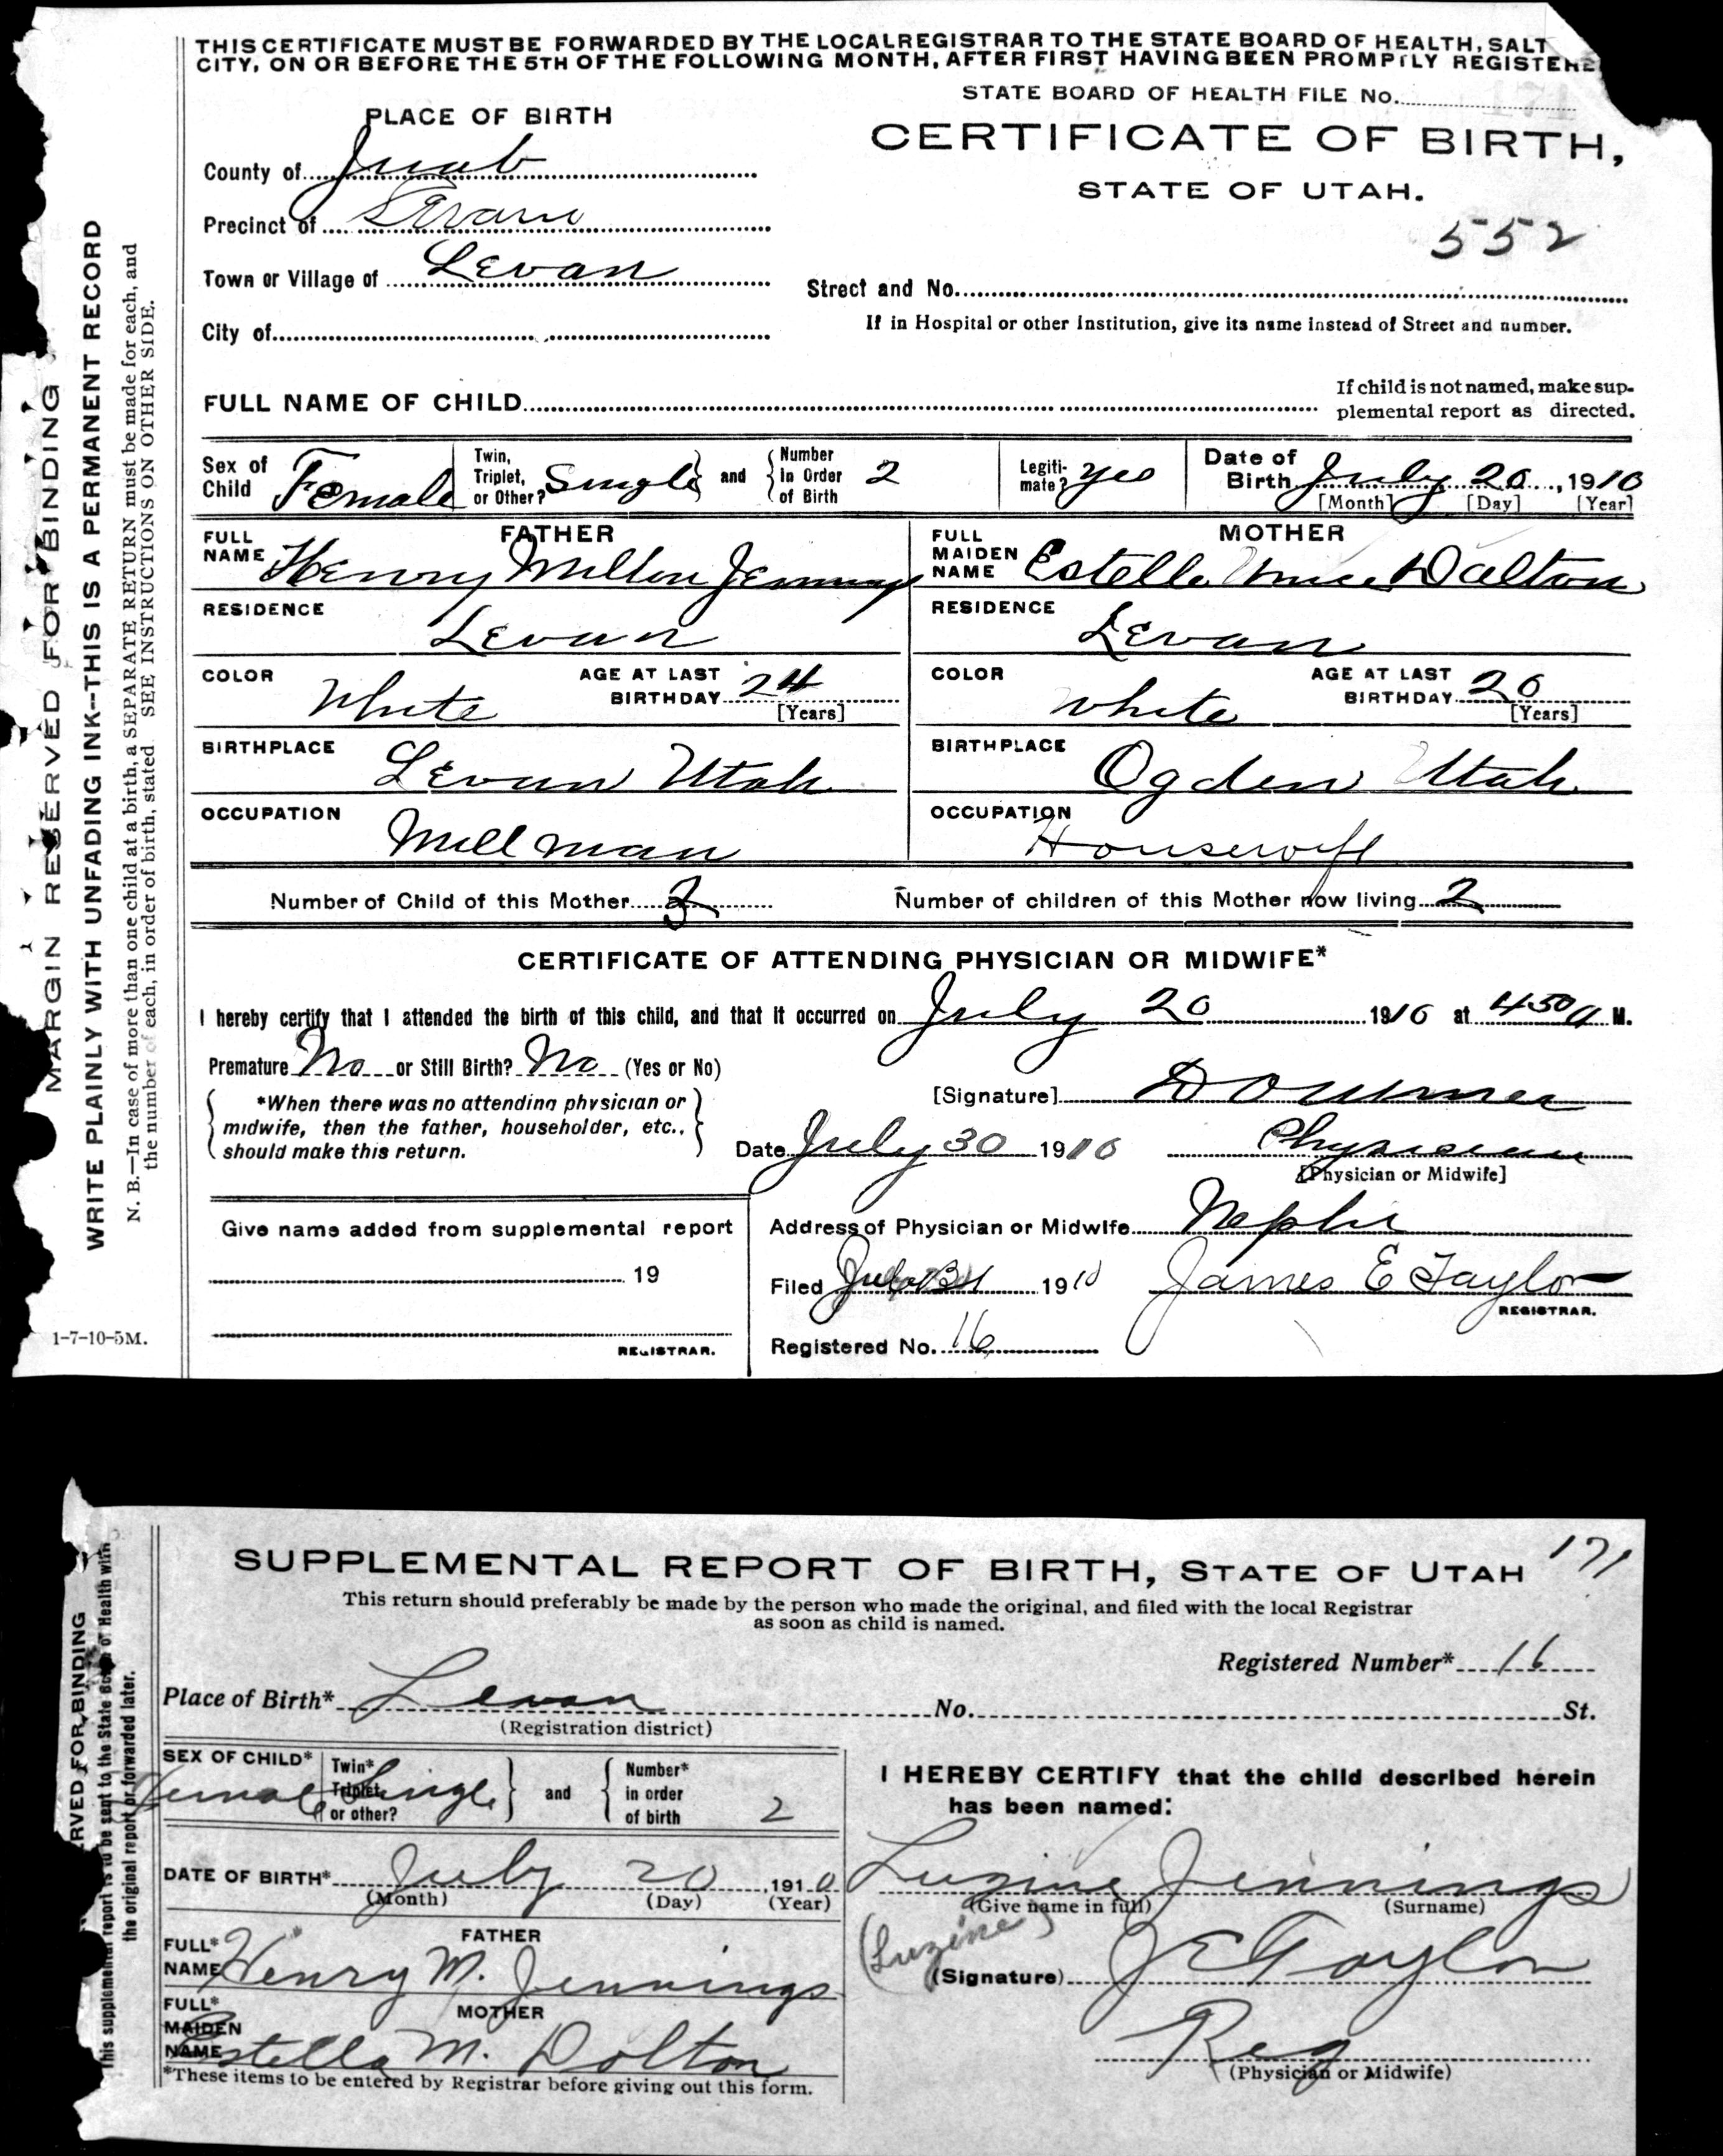 THIS CERTIFICATE MUST BE FORWARDED BY THE LOCAL REGISTRAR TO THE STATE BOARD OF HEALTH, SALT
CITY, ON OR BEFORE THE 5TH OF THE FOLLOWING MONTH, AFTER FIRST HAVING BEEN PROMPTLY REGISTERE
STATE BOARD OF HEALTH FILE No.
PLACE OF BIRTH
CERTIFICATE OF BIRTH,
STATE OF UTAH.
552
County of Juab
Precinct of Levan
Town or Village of Levan
Street and No.
If in Hospital or other Institution, give its name instead of Street and number.
City of
FULL NAME OF CHILD
If child is not named, make sup-
plemental report as directed.
Sex of Child Female
Twin, Triplet, or Other? Single and Number in Order of Birth 2
Legiti-mate? yes
Date of Birth July 20, 1910
[Month] [Day] [Year]
FATHER
FULL NAME Henry Milton Jennings
MOTHER
FULL MAIDEN NAME Estella Dalton
RESIDENCE Levan
RESIDENCE Levan
COLOR White AGE AT LAST BIRTHDAY 24 [Years]
COLOR White AGE AT LAST BIRTHDAY 20 [Years]
BIRTHPLACE Levan Utah
BIRTHPLACE Ogden Utah
OCCUPATION Mill man
OCCUPATION Housewife
Number of Child of this Mother 2 Number of children of this Mother now living 2
CERTIFICATE OF ATTENDING PHYSICIAN OR MIDWIFE*
I hereby certify that I attended the birth of this child, and that it occurred on July 20 1910 at 450 A M.
Premature No or Still Birth? No (Yes or No)
*When there was no attending physician or
midwife, then the father, householder, etc.,
should make this return.
[Signature]
Date July 30 1910 Physician
[Physician or Midwife]
Give name added from supplemental report
19
REGISTRAR.
Address of Physician or Midwife Nephi
Filed July 31 1910 James E Taylor
REGISTRAR.
Registered No. 16
MARGIN RESERVED FOR BINDING
WRITE PLAINLY WITH UNFADING INK--THIS IS A PERMANENT RECORD
N. B.—In case of more than one child at a birth, a SEPARATE RETURN must be made for each, and
the number of each, in order of birth, stated. SEE INSTRUCTIONS ON OTHER SIDE.
1-7-10-5M.
SUPPLEMENTAL REPORT OF BIRTH, STATE OF UTAH 171
This return should preferably be made by the person who made the original, and filed with the local Registrar
as soon as child is named.
Registered Number* 16
Place of Birth* Levan No. St.
(Registration district)
SEX OF CHILD* Female
Twin* Triplet or other? Single and Number* in order of birth 2
I HEREBY CERTIFY that the child described herein
has been named:
DATE OF BIRTH* July 20 1910
(Month) (Day) (Year)
Luzine Jennings
(Give name in full) (Surname)
(Luzine)
FATHER
FULL* NAME Henry M. Jennings
(Signature) J E Taylor
MOTHER
FULL* MAIDEN NAME Estella M. Dolton
Reg
(Physician or Midwife)
*These items to be entered by Registrar before giving out this form.
RVED FOR BINDING
This supplemental report is to be sent to the State Board of Health with
the original report or forwarded later.